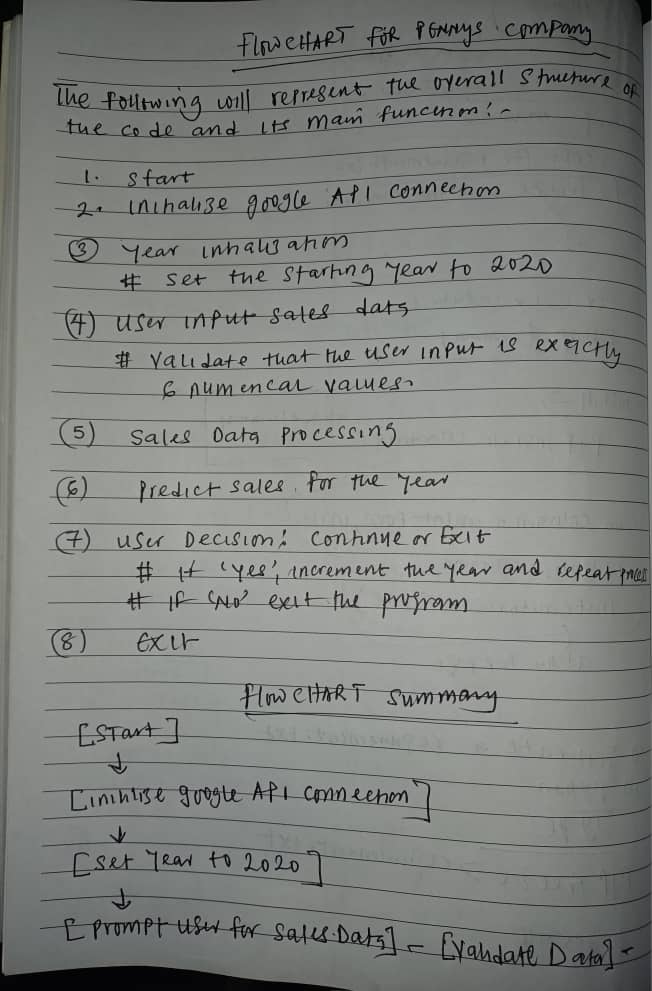 FLOWCHART FOR PENNYS COMPANY
The following will represent the overall structure of
the code and its main function:-
1. Start
2. Initialise google API connection
(3) Year initialisation
# Set the starting year to 2020
(4) User input sales data
# Validate that the user input is exactly
6 numerical values.
(5) Sales Data Processing
(6) Predict sales for the year
(7) User Decision: Continue or Exit
# If 'yes', increment the year and repeat process
# If 'No' exit the program
(8) Exit
FLOWCHART SUMMARY
[START]
↓
[initialise google API connection]
↓
[Set Year to 2020]
↓
[Prompt User for Sales Data] - [Validate Data] -